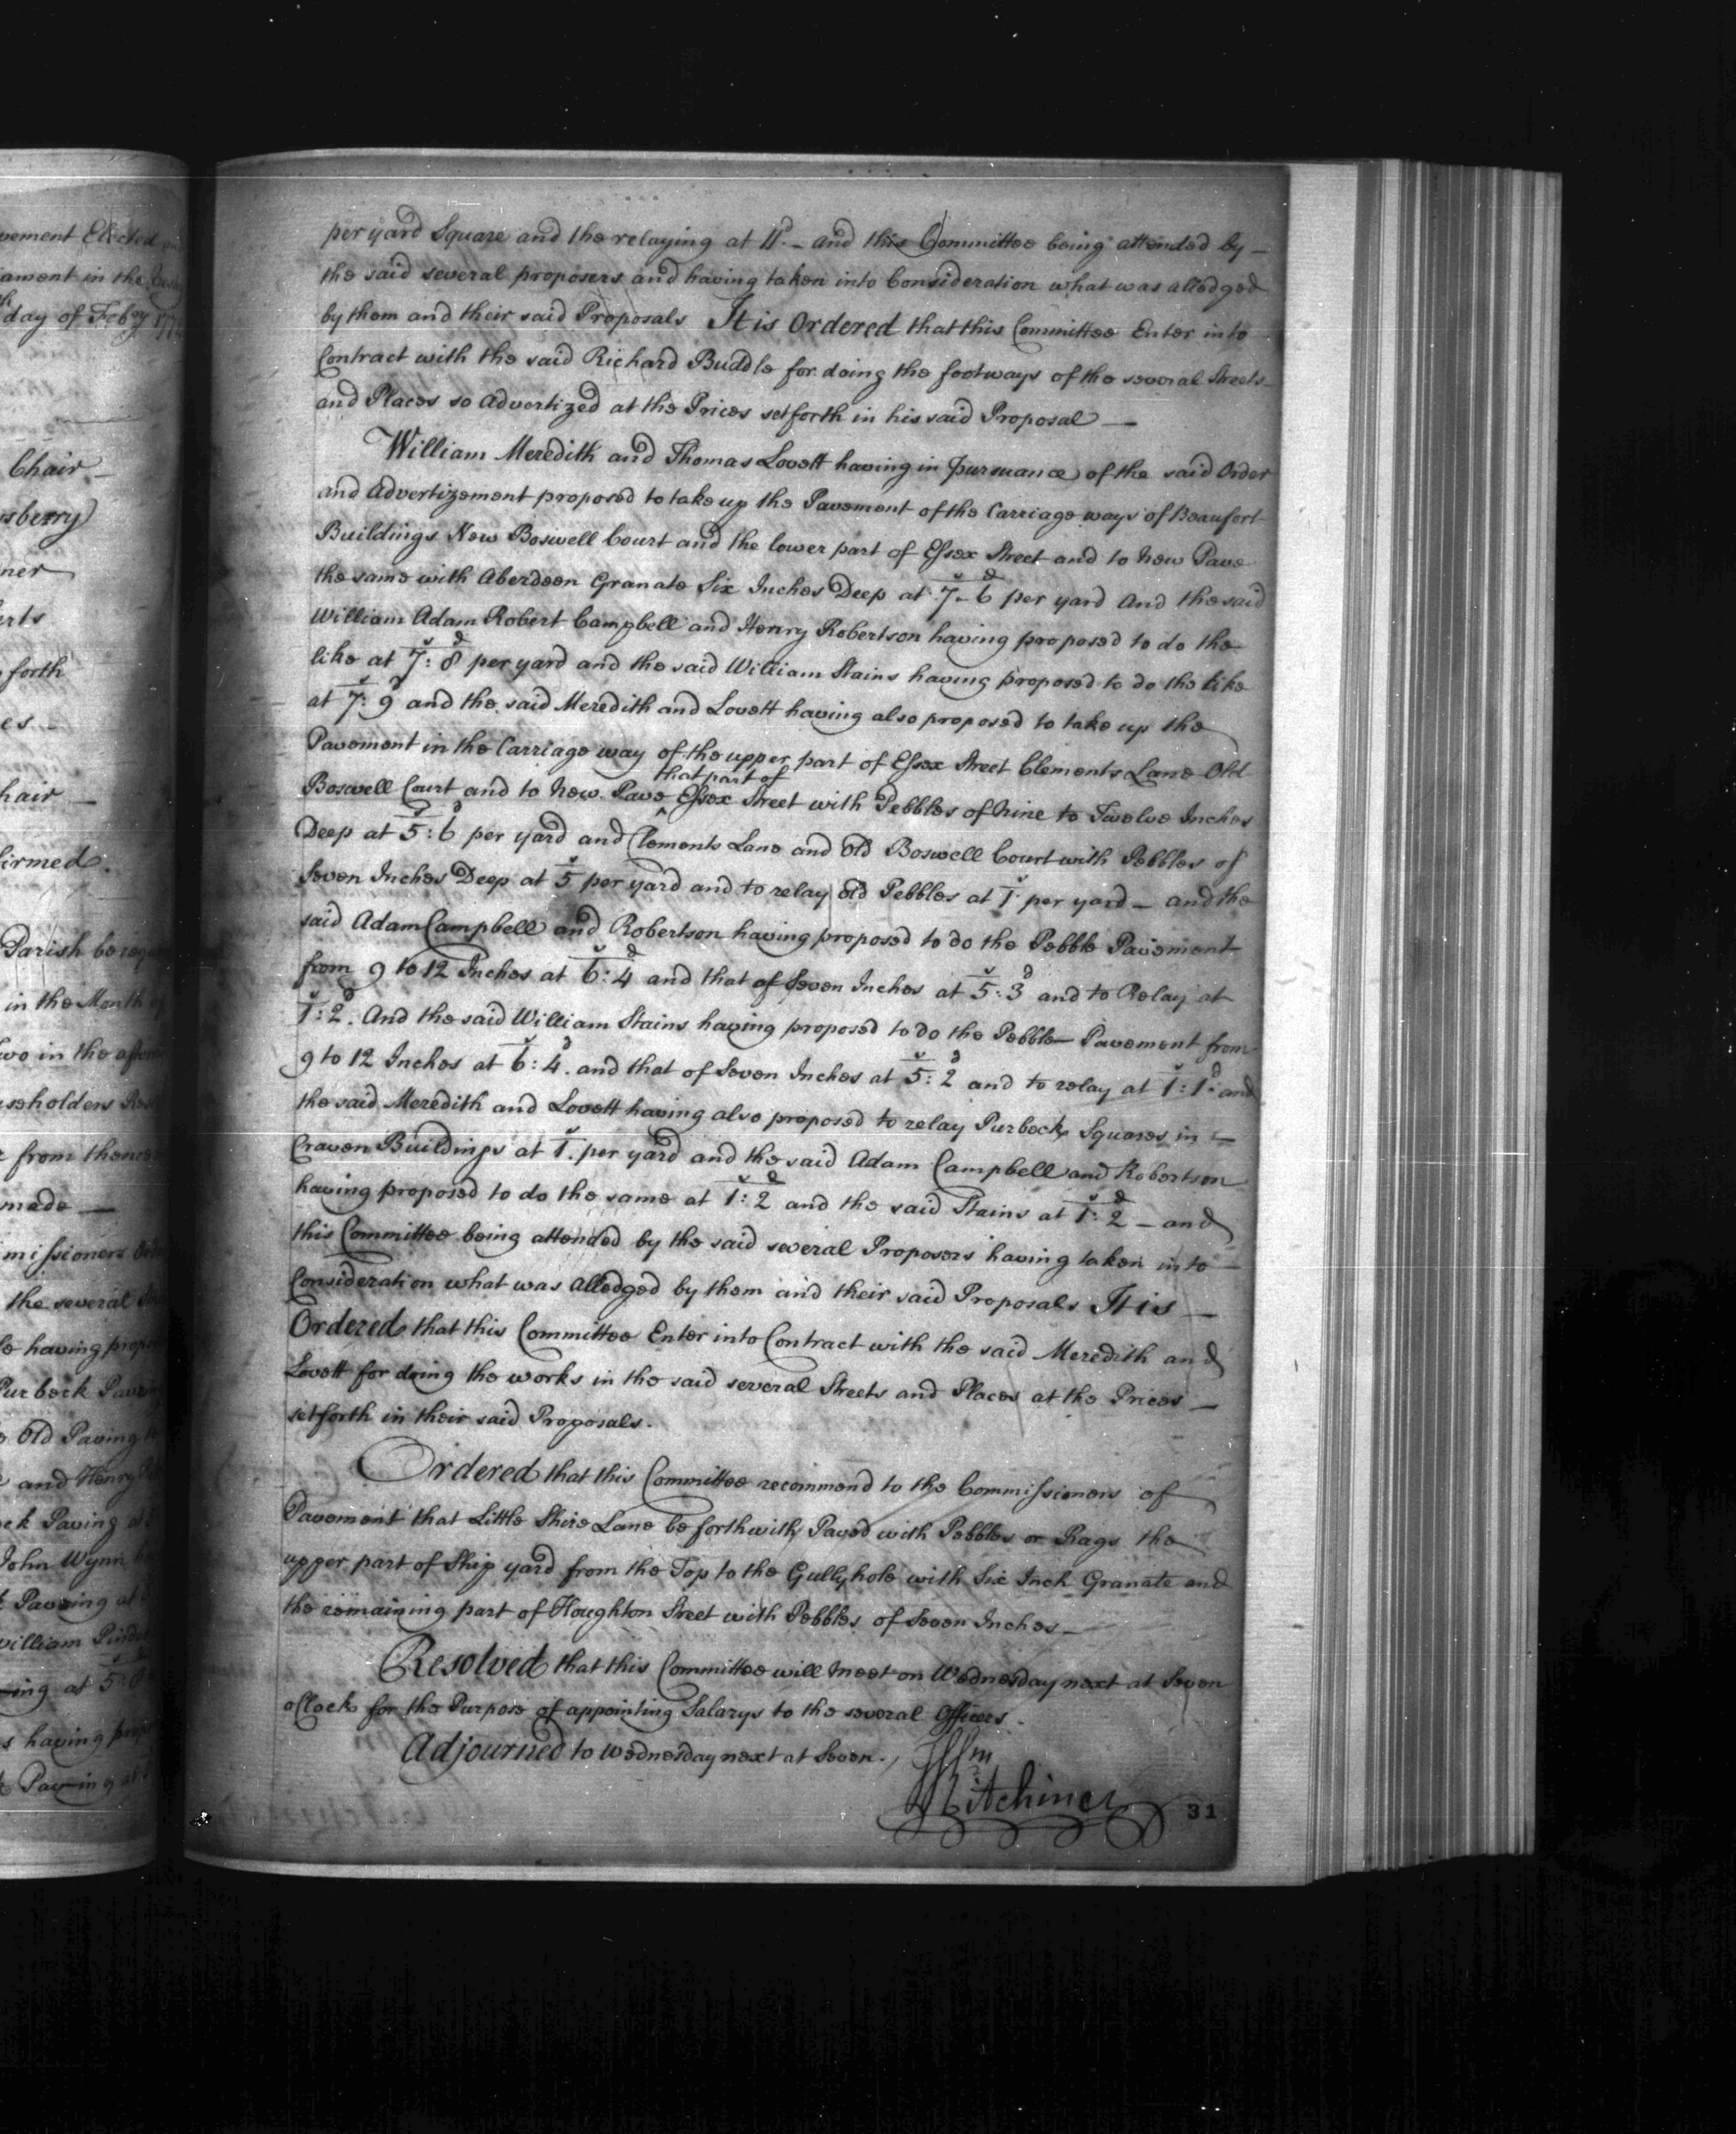 vement Elected
ament in the
day of Feb.ry 177
Chair
sberry
ner
rts
forth
es
hair
firmed.
Parish be
in the Month
wo in the
useholders
from thence
made
missioners
the several
having
Purbeck
Old Paving
and Henry
ck Paving at
John Wynn
Paveing at
william
ing at 5
s having
Paving at
per yard Square and the relaying at 11d. - and this Committee being attended by -
the said several proposers and having taken into Consideration what was alledged
by them and their said Proposals It is Ordered that this Committee Enter into
Contract with the said Richard Buddle for doing the footways of the several Streets
and Places so Advertized at the Prices setforth in his said Proposal —
William Meredith and Thomas Lovett having in pursuance of the said Order
and Advertizement proposed to take up the Pavement of the Carriage ways of Beaufort
Buildings New Boswell Court and the lower part of Essex Street and to New Pave
the same with Aberdeen Granate Six Inches Deep at 7s-6d per yard And the said
William Adam Robert Campbell and Henry Robertson having proposed to do the
like at 7s:8d per yard and the said William Stains having proposed to do the like
at 7s:9d and the said Meredith and Lovett having also proposed to take up the
Pavement in the Carriage way of the upper part of Essex Street Clements Lane Old
that part of
Boswell Court and to New Pave ^ Essex Street with Pebbles of Nine to Twelve Inches
Deep at 5s:6d per yard and Clements Lane and Old Boswell Court with Pebbles of
Seven Inches Deep at 5s per yard and to relay old Pebbles at 1s per yard - and the
said Adam Campbell and Robertson having proposed to do the Pebble Pavement
from 9 to 12 Inches at 6s:4d and that of Seven Inches at 5s:3d and to Relay at
1s:2d. And the said William Stains having proposed to do the Pebble Pavement from
9 to 12 Inches at 6s:4d. and that of Seven Inches at 5s:2d and to relay at 1s:1d and
the said Meredith and Lovett having also proposed to relay Purbeck Squares in -
Craven Buildings at 1s. per yard and the said Adam Campbell and Robertson
having proposed to do the same at 1s:2d and the said Stains at 1s:2d - and
this Committee being attended by the said several Proposers having taken into
Consideration what was alledged by them and their said Proposals It is —
Ordered that this Committee Enter into Contract with the said Meredith and
Lovett for doing the works in the said several Streets and Places at the Prices —
setforth in their said Proposals.
Ordered that this Committee recommend to the Commissioners of
Pavement that Little Shire Lane be forthwith Paved with Pebbles or Rags the
upper part of Ship yard from the Top to the Gullyhole with Six Inch Granate and
the remaining part of Houghton Street with Pebbles of Seven Inches -
Resolved that this Committee will meet on Wednesday next at Seven
oClock for the Purpose of appointing Salarys to the several Officers.
Adjourned to Wednesday next at Seven.
Wm
Kitchiner
31